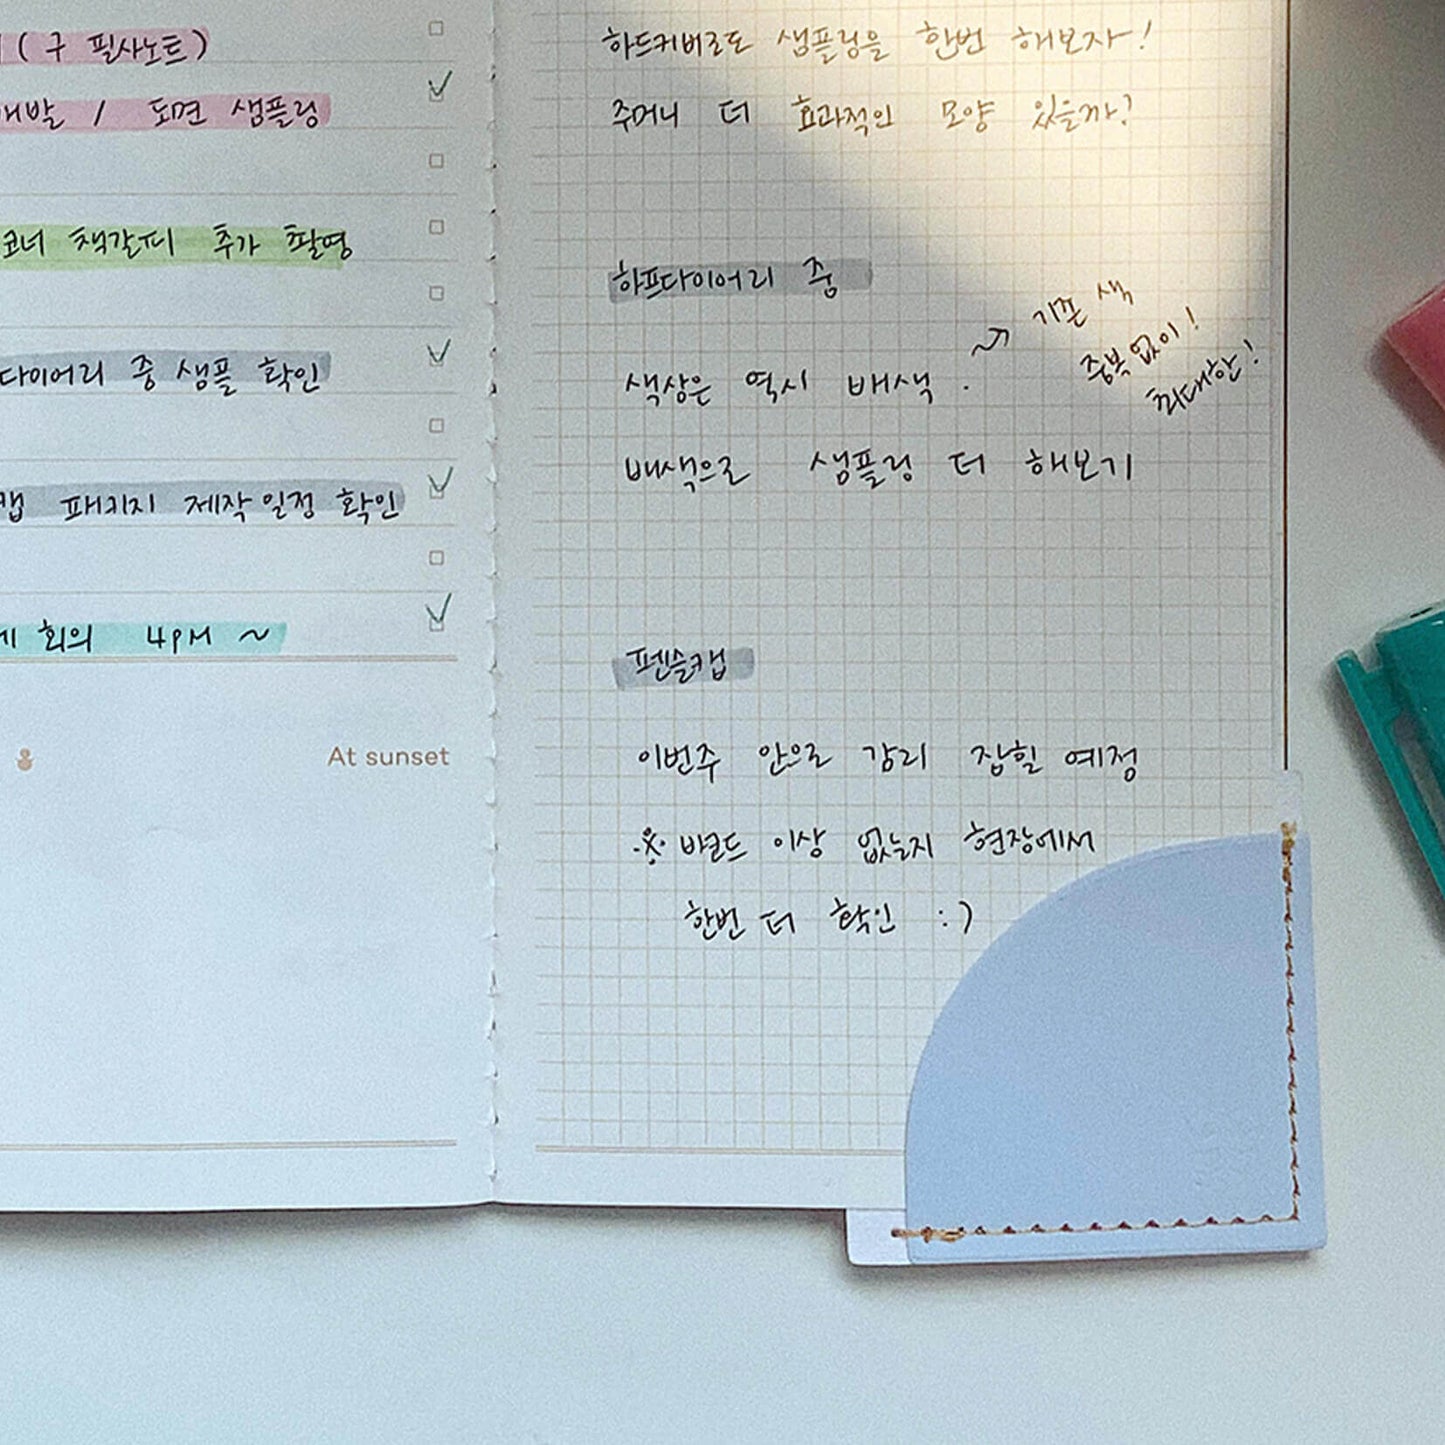 ( 구 필사노트 )
개발 / 도면 샘플링
코너 책갈피 추가 촬영
다이어리 중 샘플 확인
캡 패키지 제작 일정 확인
회의 4PM ~
At sunset
하드커버로도 샘플링을 한번 해보자!
주머니 더 효과적인 모양 있을까?
하프다이어리 중
색상은 역시 배색.
기존 색
중복 없이!
최대한!
배색으로 샘플링 더 해보기
펜슬캡
이번주 안으로 감리 잡힐 예정
※ 바코드 이상 없는지 현장에서
한번 더 확인 :)